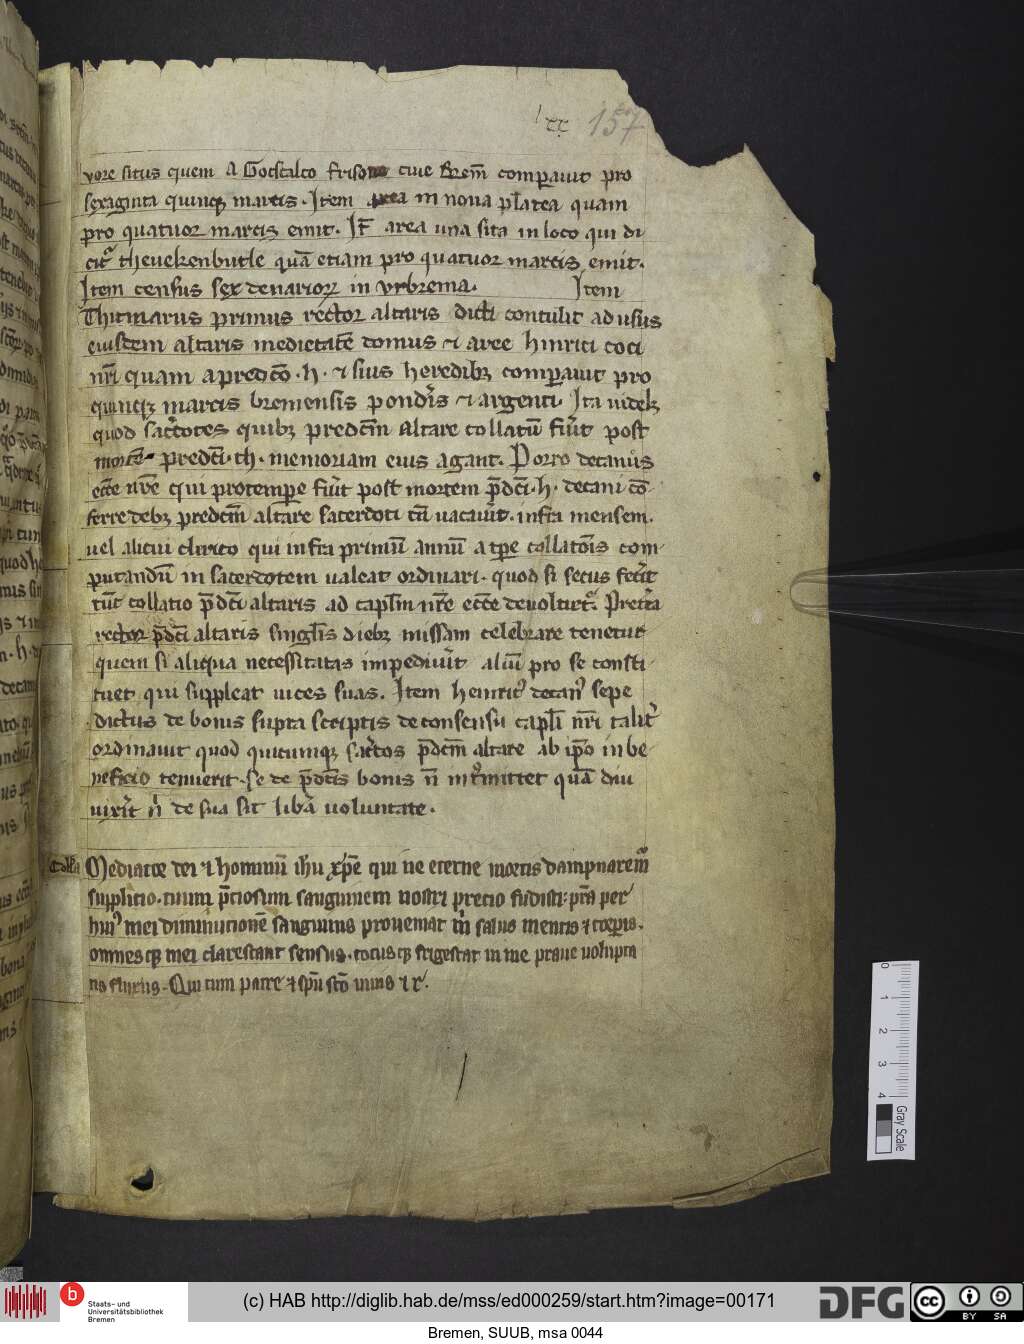 lxx 157
vore situs quem A Godscalco frisone ciue Brem̄ comparauit pro
sexaginta quinqȝ marcis. Item area in noua platea quam
pro quatuor marcis emit. It̄ area una sita in loco qui di
citr̉ thevekenbutle quā etiam pro quatuor marcis emit.
Item census sex denarioꝝ in vrbrema. Item
Thitmarus primus rector altaris dicti contulit ad usus
eiusdem altaris medietatē domus ⁊ aree hinrici coci
nr̄i quam a predc̄o .h. ⁊ suis heredibȝ comparauit pro
quinqȝ marcis bremensis pond̓is ⁊ argenti. Ita uidelȝ
quod sac̓dotes quibȝ predcm̄ Altare collatū fu̓it post
mortē predc̄i .th. memoriam eius agant. Porro decanus
ecc̄e nr̄e qui pro tempere fu̓it post mortem p̄dc̄i .h. decani cō
ferre debȝ predcm̄ altare sacerdoti cū uacau̓it. infra mensem.
uel alicui clerico qui infra primū annū a tp̄e collatōis com
putandū in sacerdotem ualeat ordinari. quod si secus fec̓it
tūc collatio p̄dc̄i altaris ad capl̄m nr̄e ecc̄e deuoluet̉. Pret̓ea
rector p̄dc̄i altaris singl̓is diebȝ missam celebrare tenetur
quem si aliqua necessitatas impediu̓it aliū pro se consti
tuet qui suppleat uices suas. Item henric̉ decan̉ sepe
dictus de bonis supra scriptis de consensu capl̄i nr̄i talit̓
ordinauit quod quicumqȝ sac̓dos p̄dcm̄ altare ab ip̄o in be
neficio tenuerit. se de p̄dc̄is bonis n̄ int̓mittet quā diu
uix̓it n̄ de sua sit lib̓a uoluntate.
Coll̄a Mediator dei ⁊ hominū ih̄u xp̄e qui ne eterne mortis dampnarem̉
supplicio. tuum p̄ciosum sanguinem nostri precio fudisti: p̄sta per
huỉ mei diminucionē sanguinis proueniat m̄ salus mentis ⁊ corporis.
omnes qȝ mei clarescant sensus. totus qȝ frigescat in me praue uolupta
tis fluxus. Qui cum patre ⁊ sp̄u sc̄o uiuis ⁊ r̄.
0 1 2 3 4 Gray Scale
b
Staats- und
Universitätsbibliothek
Bremen
(c) HAB http://diglib.hab.de/mss/ed000259/start.htm?image=00171
DFG
cc BY SA
Bremen, SUUB, msa 0044